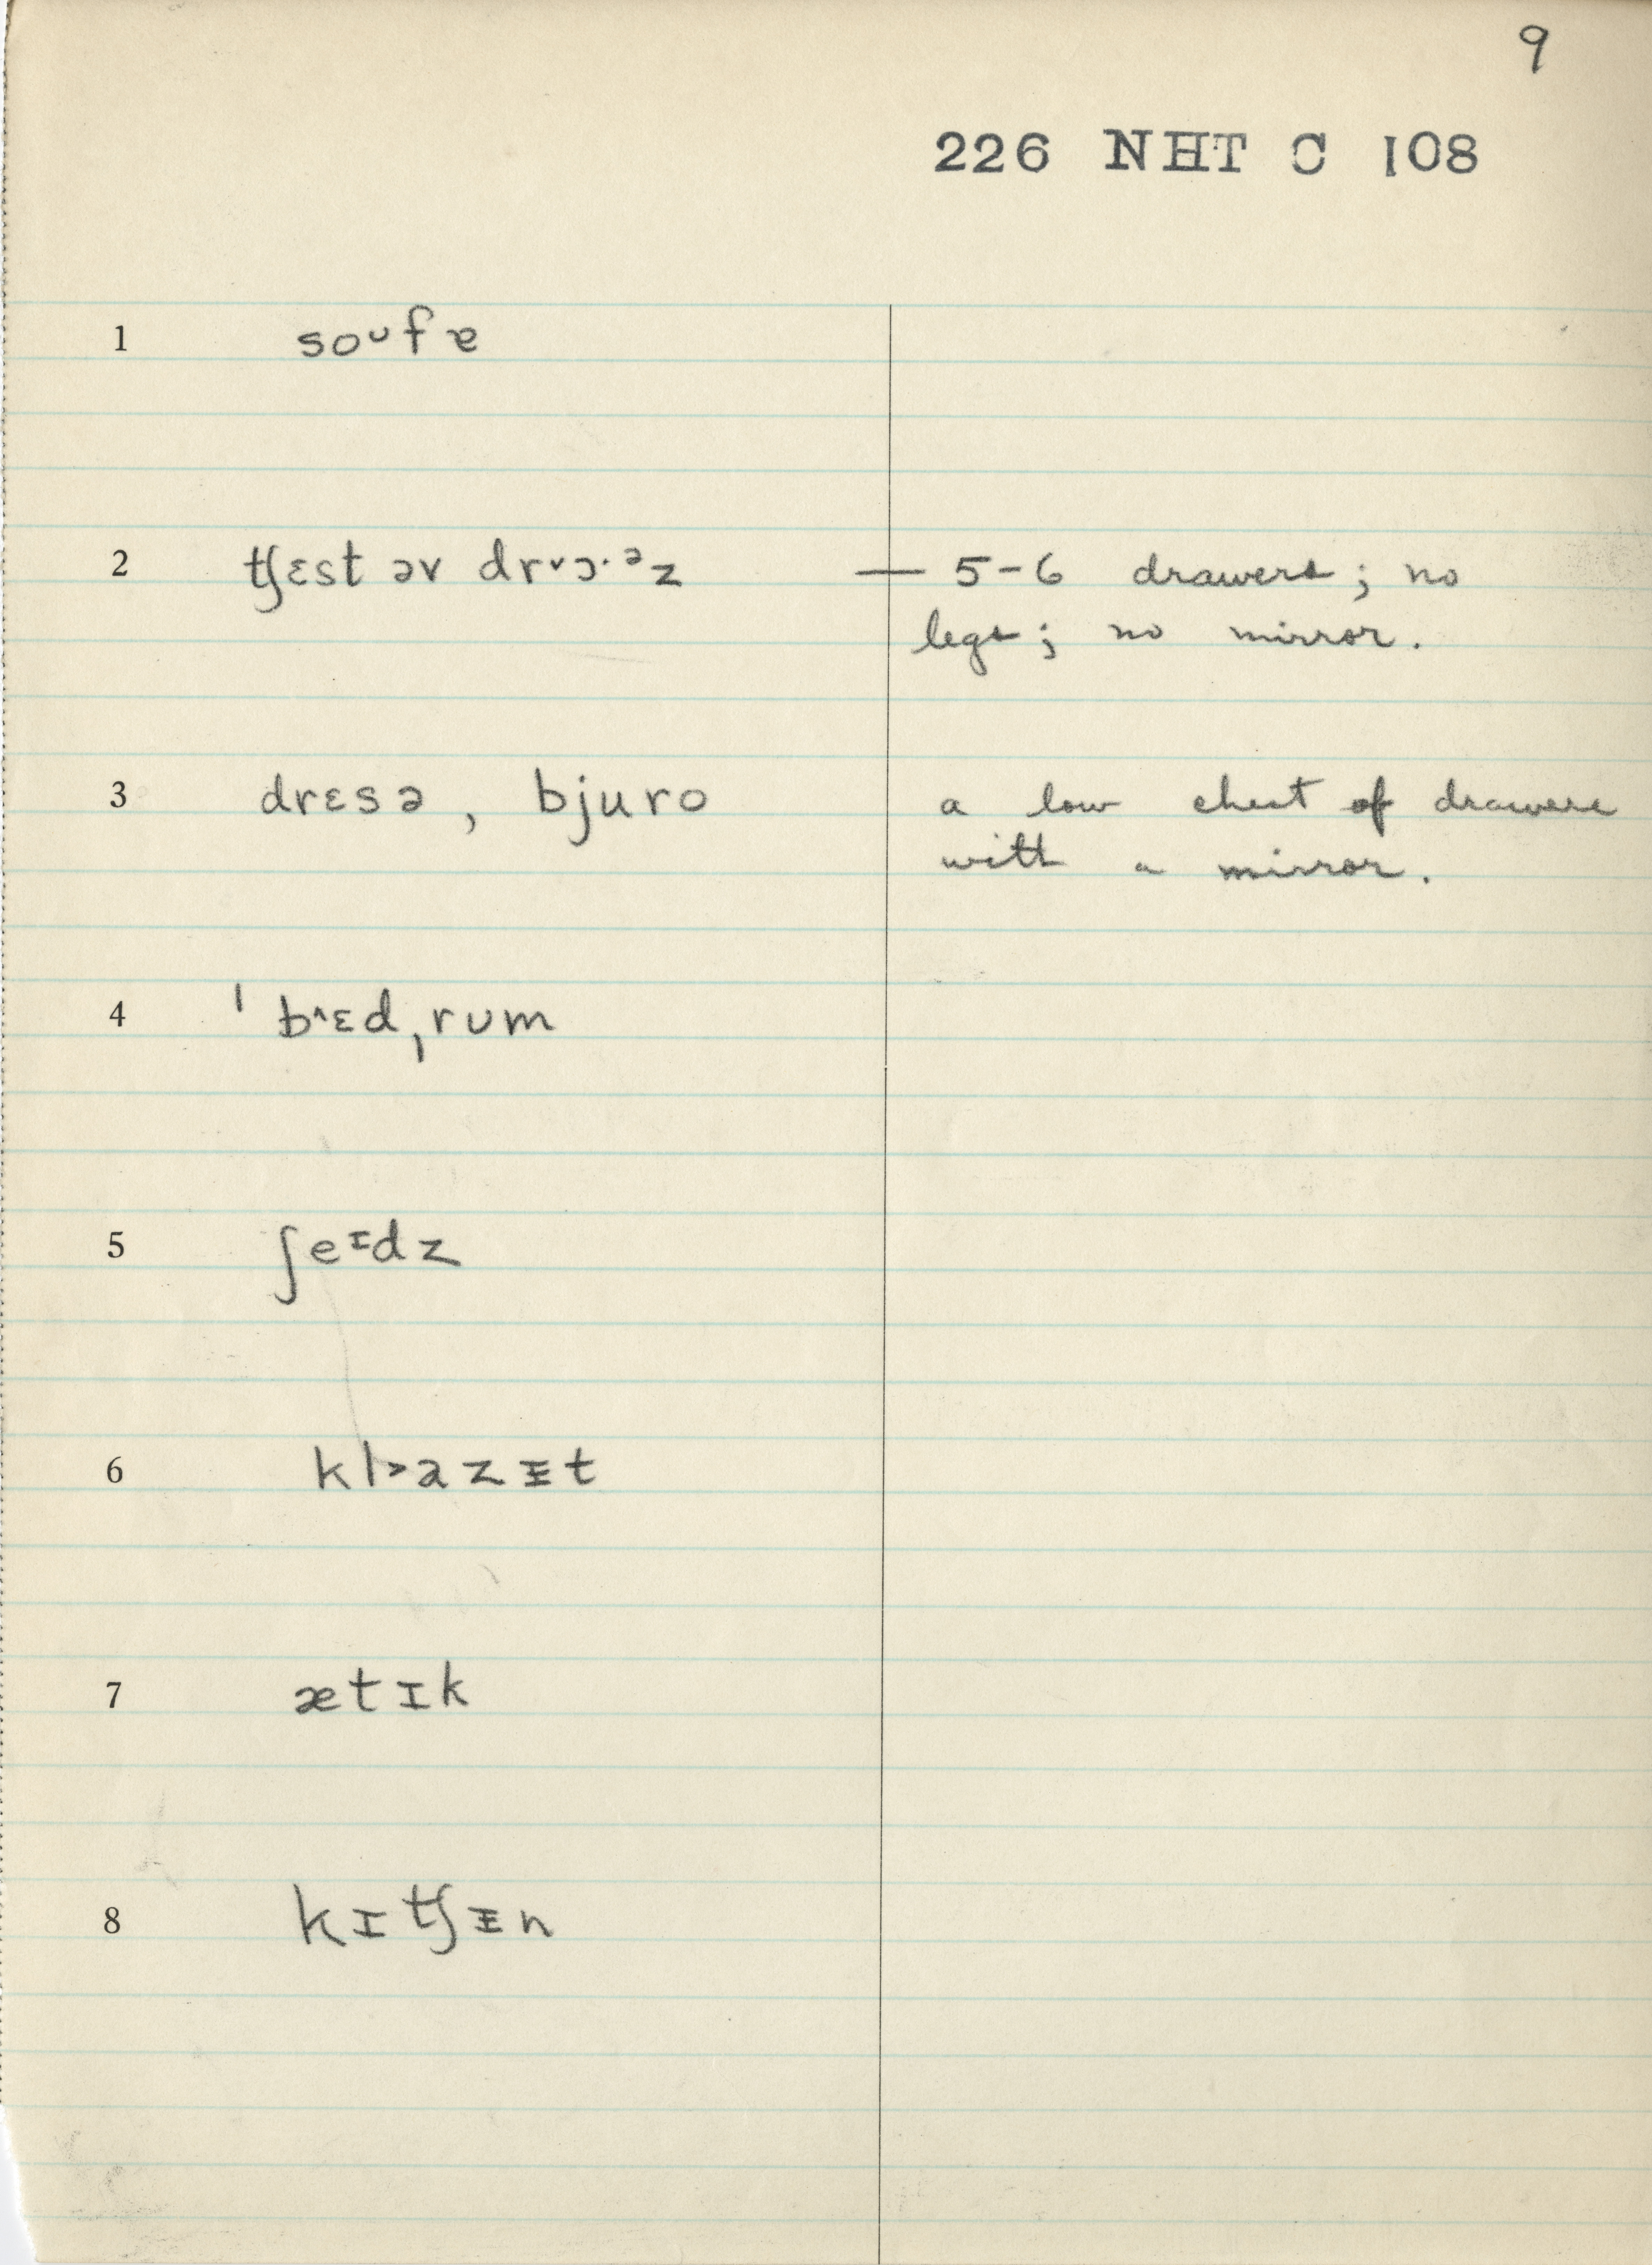 9
226 NHT C 108
1 soᴗfɐ
2 ʧɛst əv drᵛɔ·ᵊz — 5-6 drawers; no
legs; no mirror.
3 drɛsə, bjuro a low chest of drawers
with a mirror.
4 ˈb^ɛdˌrᴜm
5 ʃeᶦdz
6 kl>azɪ̵t
7 ætɪk
8 kɪʧɪ̵n